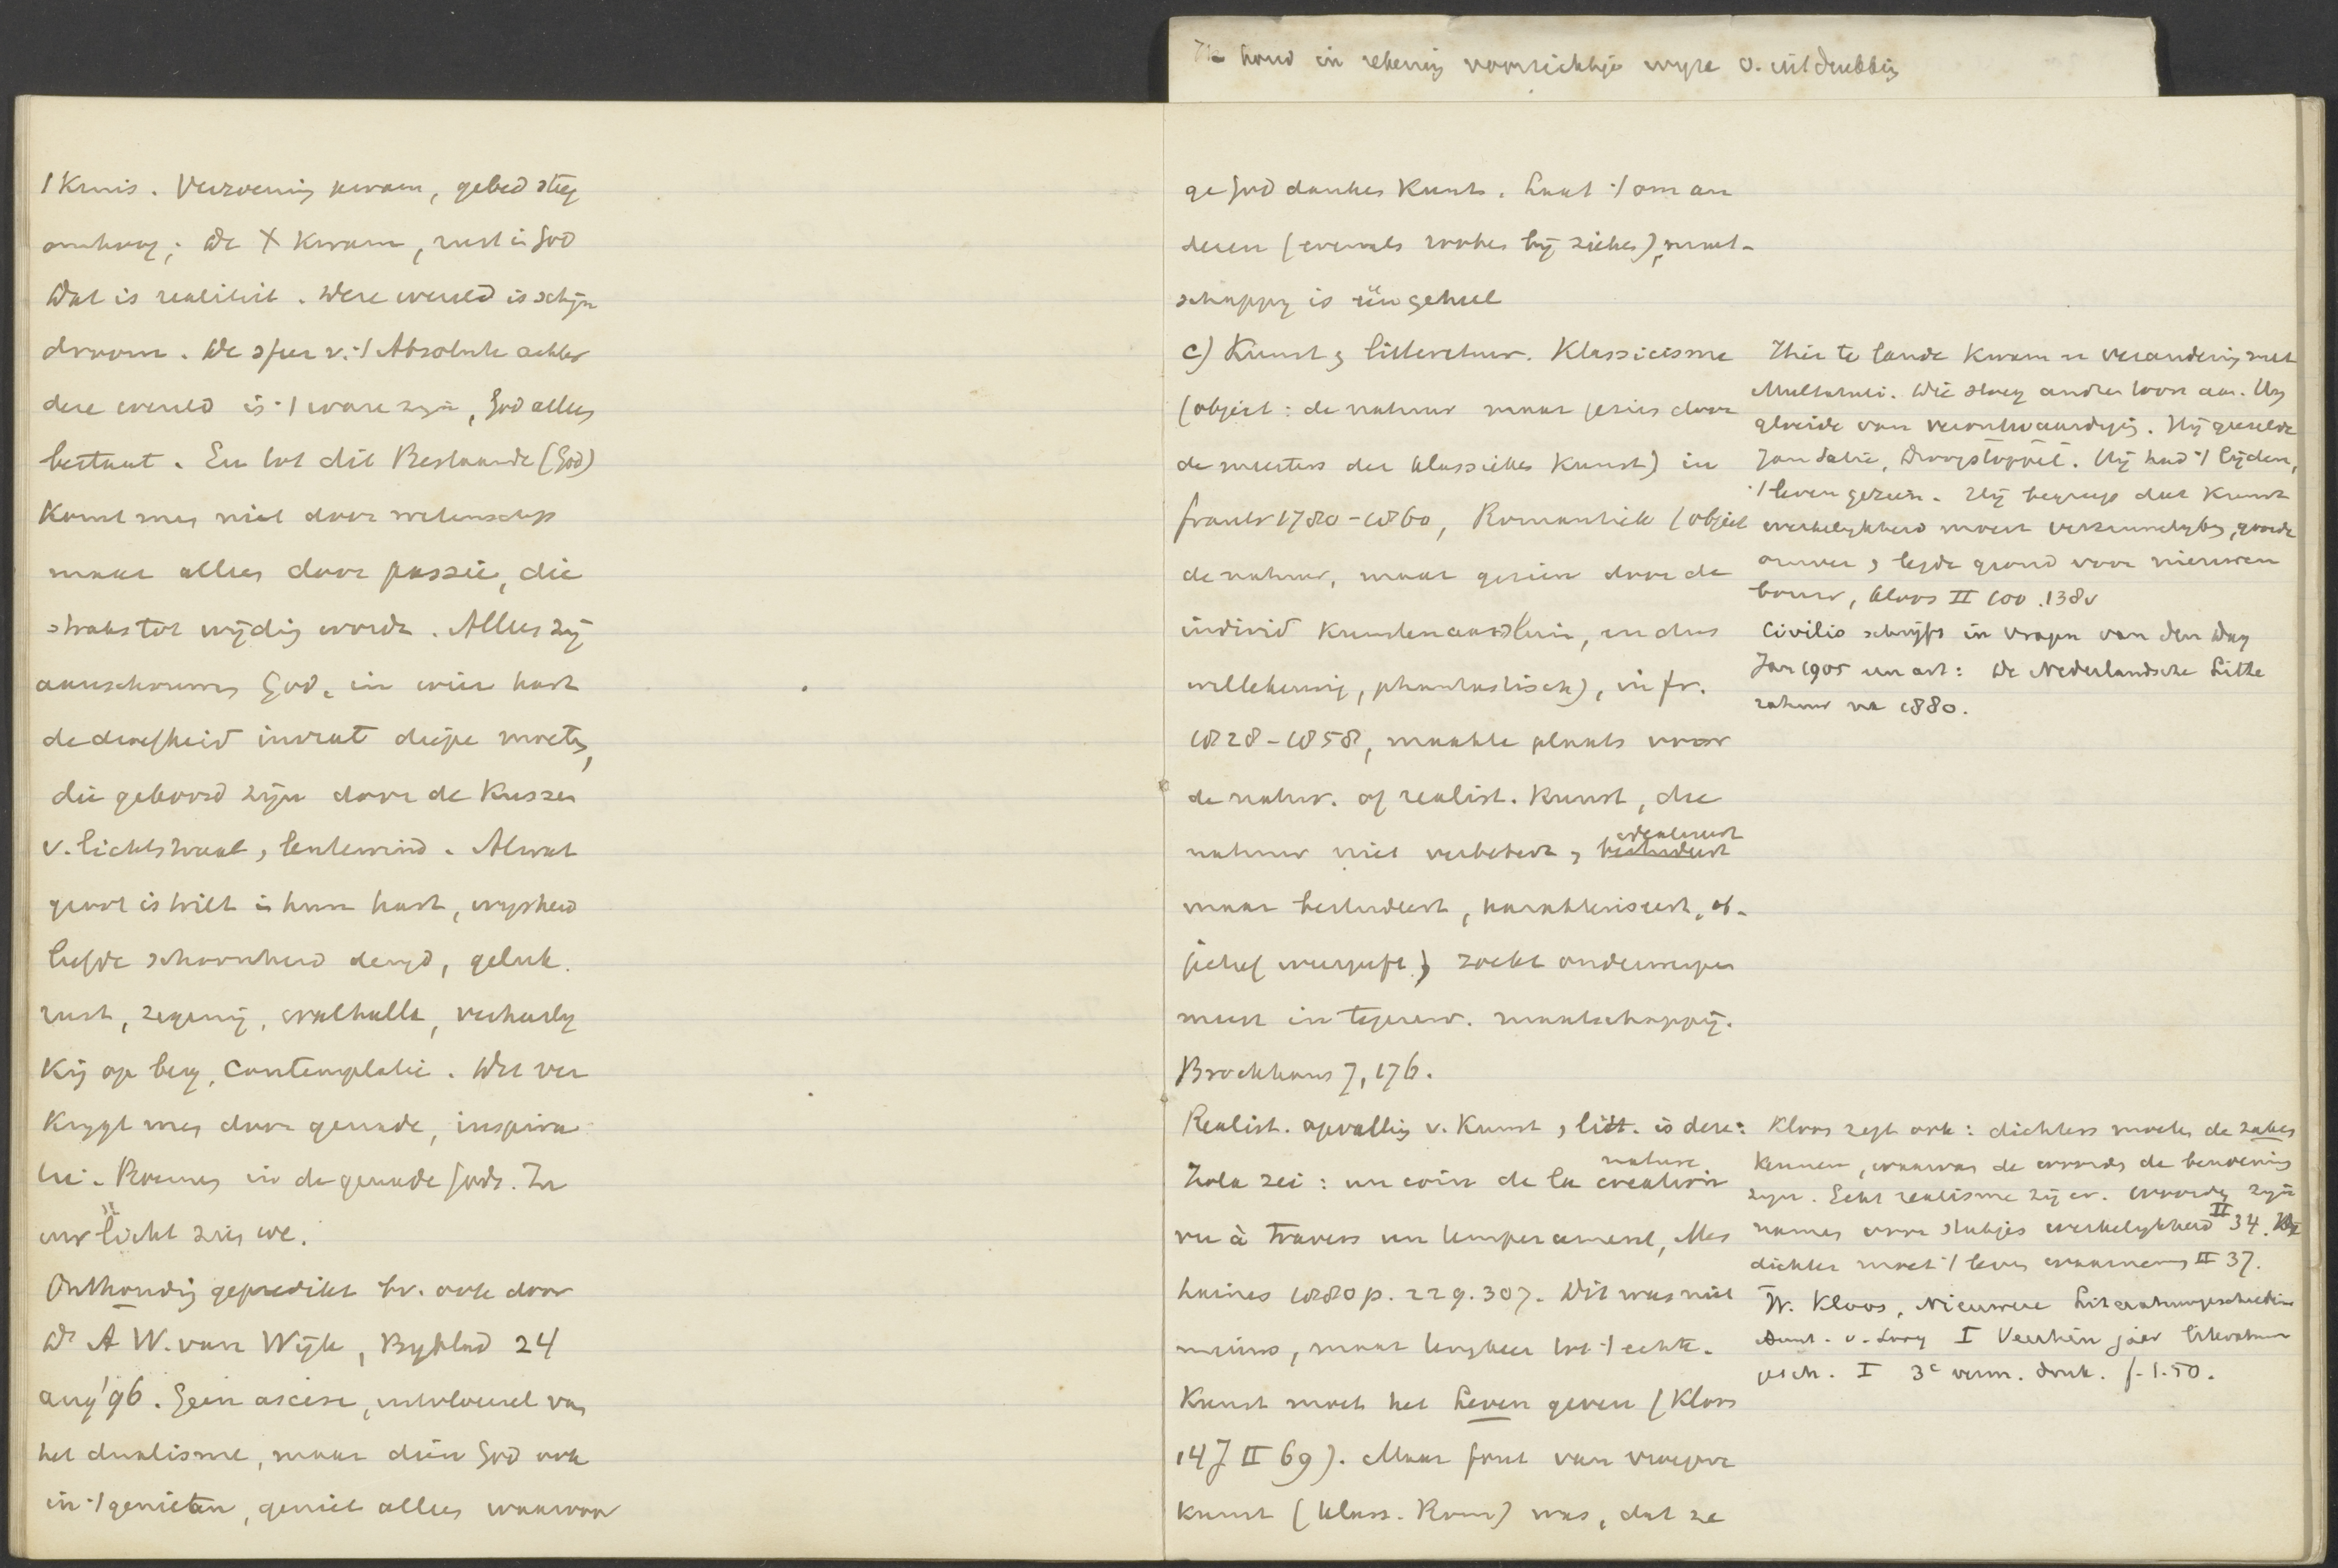 houd in rekening voorzichtige wyze v. uitdrukking
't Kruis. Verzoening kwam, gebed steeg
omhoog; de X kwam, rust in God
Wat is realiteit. Deze wereld is schijn
droom. De sfeer v. 't Absolute achter
deze wereld is 't ware zyn, God alleen
bestaat. En tot dit Bestaande (God)
Komt men niet door wetenschap
maar alleen door passie, die
straks tot wijding wordt. Alleen zij
aanschouwen God, in wier hart
de droefheid invrat diepe moeten,
die geboord zijn door de Kussen
v. lichtstraal, lentewind. Al wat
groot is trilt in hun hart, wysheid
liefde schoonheid deugd, geluk.
rust, zegening, walhalla, verheerly
King op berg, Contemplatie. Dit ver
Krygt men door genade, inspira
tie. Roemen in de genade Gods. In
uw licht zien we.
Onthouding gepredikt bv. ook door
Dr A W. van Wijk, Byblad 24
aug '96. Geen ascese, uitvloeisel van
het dualisme, maar dien God ook
in 't genieten, geniet alles waarvoor
ge God danken Kunt. Laat 't om an
deren (evenals roken bij zieken), maat-
schappy is één geheel
c) Kunst, litteratuur. Klassicisme
(object: de natuur maar gezien door
de meesters der klassieke Kunst) in
frankr 1780-1860, Romantiek (object
de natuur, maar gezien door de
individ Kunstenaar alleen, en dus
willekeurig, phantastisch), in fr.
1828-1858, maakte plaats voor
de natur. of realist. Kunst, die
idealiseert
natuur niet verbetert, bestudeert
maar bestudeert, karakteriseert, ob-
jectief weergeeft, zoekt onderwerpen
meest in tegenw. maatschappij.
Brockhaus 7, 176.
Realist. opvatting v. Kunst, litt. is deze:
nature
Zola zei: un coin de la creation
vu à travers un temperament, Mes
haines 1880 p. 229. 307. Dit was niet
nieuw, maar terugkeer tot 't echte.
Kunst moet het Leven geven (Kloos
147 II 69). Maar fout van vroegere
Kunst (klass. Rom) was, dat ze
Hier te lande Kwam er verandering met
Multatuli. Die sloeg andren toon aan. Hy
gloeide van verontwaardiging. Hij geeselde
Jan Salie, Droogstoppel. Hij had 't lijden,
't leven gezien. Hij begreep dat Kunst
werkelykheid moest verzinnelyken, gooide
omver, legde grond voor nieuwen
bouw, Kloos II 100. 138v
Civilis schrijft in Vragen van den Dag
Jan 1905 een art: De Nederlandsche Litte
ratuur na 1880.
Kloos zegt ook: dichters moeten de zaken
Kennen, waarvan de woorden de benoeming
zyn. Echt realisme zij er. Woorden zyn
namen voor stukjes werkelykheid II 34. De
dichter moet 't leven waarnemen II 37.
W. Kloos, Nieuwere Literatuurgeschiedenis
Amst. v. Looy I Veertien jaar literatuur
gesch. I 3e verm. druk. f. 1.50.